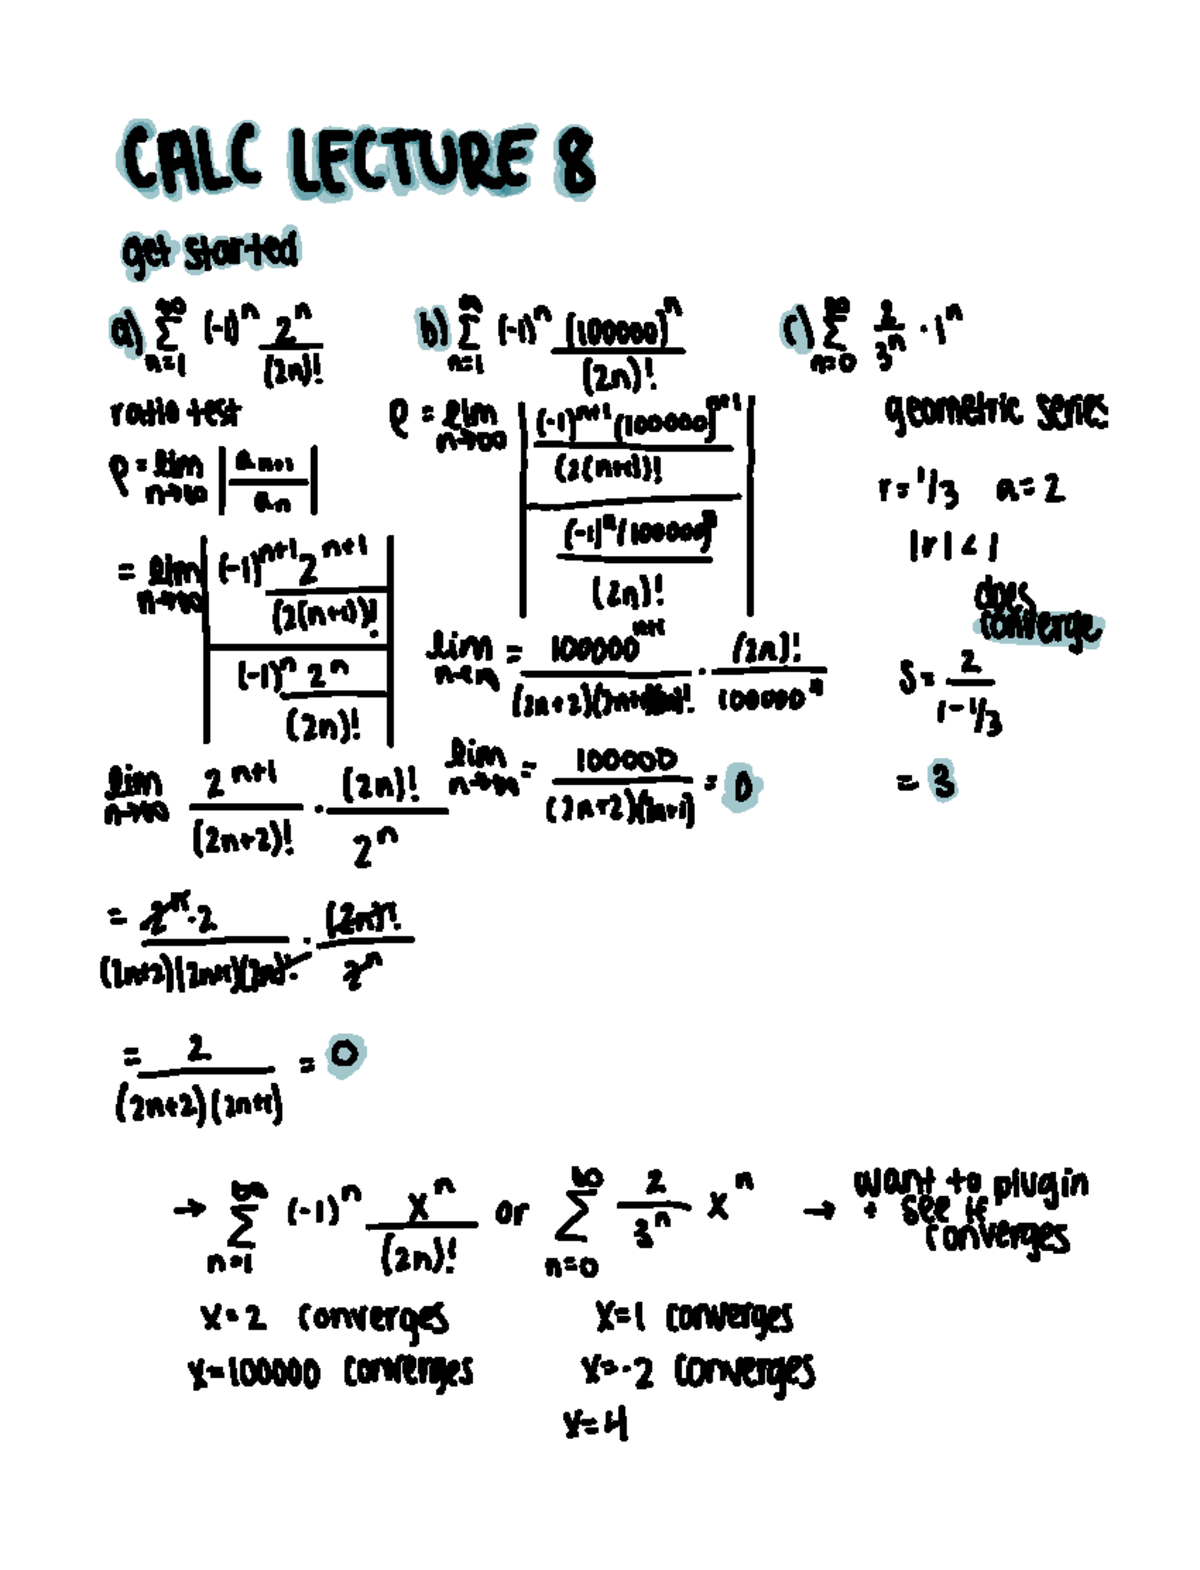 CALC LECTURE 8
get started
a) ∑_{n=1}^{∞} (-1)^n 2^n/(2n)!
ratio test
ρ = lim_{n→∞} |a_{n+1}/a_n|
= lim_{n→∞} |((-1)^{n+1} 2^{n+1}/(2(n+1))!)/((-1)^n 2^n/(2n)!)|
lim_{n→∞} 2^{n+1}/(2n+2)! · (2n)!/2^n
= 2^n·2/(2n+2)(2n+1)(2n)! · (2n)!/2^n
= 2/(2n+2)(2n+1) = 0
b) ∑_{n=1}^{∞} (-1)^n (100000)^n/(2n)!
ρ = lim_{n→∞} |((-1)^{n+1} (100000)^{n+1}/(2(n+1))!)/((-1)^n (100000)^n/(2n)!)|
lim_{n→∞} = 100000^{n+1}/(2n+2)(2n+1)(2n)! · (2n)!/100000^n
lim_{n→∞} = 100000/(2n+2)(2n+1) = 0
c) ∑_{n=0}^{∞} 2/3^n · 1^n
geometric series
r = 1/3 a = 2
|r| < 1
does
converge
S = 2/(1-1/3)
= 3
→ ∑_{n=1}^{∞} (-1)^n x^n/(2n)! or ∑_{n=0}^{∞} 2/3^n x^n → want to plug in
+ see if
converges
x=2 converges
x=100000 converges
x=1 converges
x=-2 converges
x=4